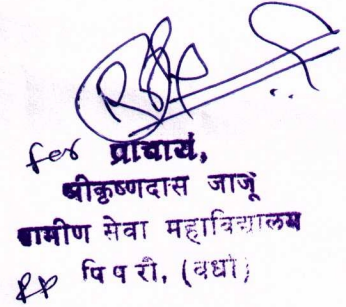 for प्राचार्य,
श्रीकृष्णदास जाजू
ग्रामीण सेवा महाविद्यालय
पिपरी, (वर्धा)